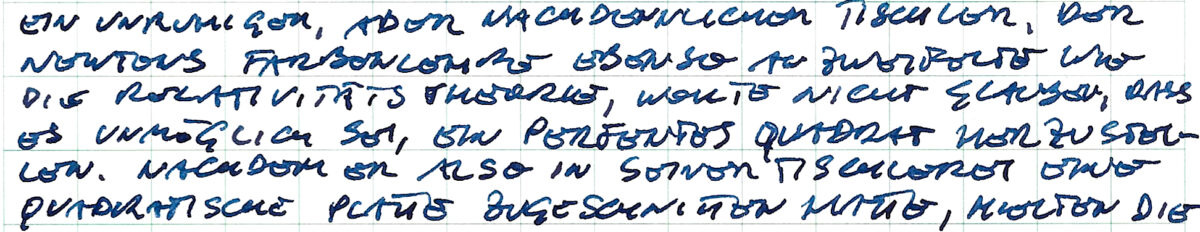 EIN UNRUHIGER, ABER NACHDENKLICHER TISCHLER, DER
NEWTONS FARBENLEHRE EBENSO ANZWEIFELTE WIE
DIE RELATIVITÄTSTHEORIE, WOLLTE NICHT GLAUBEN, DASS
ES UNMÖGLICH SEI, EIN PERFEKTES QUADRAT HERZUSTEL-
LEN. NACHDEM ER ALSO IN SEINER TISCHLEREI EINE
QUADRATISCHE PLATTE ZUGESCHNITTEN HATTE, HIELTEN DIE